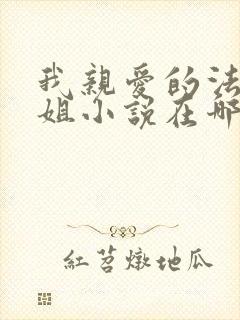 我親愛的法
姐小說在哪
紅苕燉地瓜